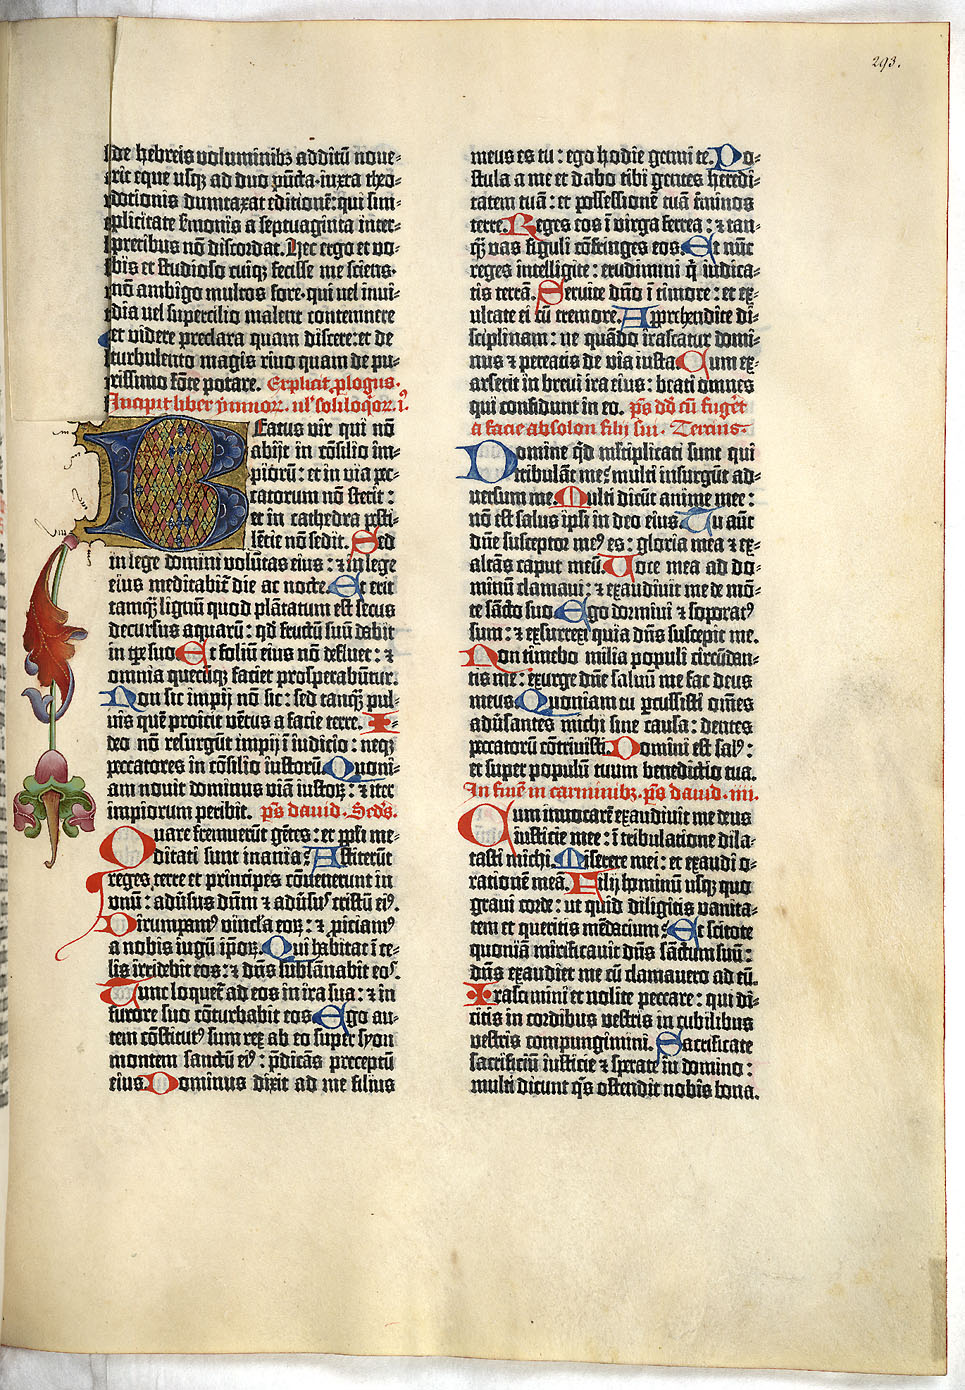 293.
de hebreis voluminibꝫ additũ noue-
rit eque usqꝫ ad duo pũcta·iuxta theo-
dotionis dumtaxat editionẽ: qui sim-
plicitate ẜmonis a septuaginta inter-
pretibus nõ discordat. Hec ergo et vo-
bis et studioso cuiqꝫ fecisse me sciens·
nõ ambigo multos fore·qui uel inui-
dia uel supercilio malent contemnere
et videre preclara quam discere: et de
turbulento magis riuo quam de pu-
rissimo fõte potare. Explicit ꝓlogus·
Incipit liber ymnoꝝ. uel soliloqioꝝ. iꝰ.
Beatus vir qui nõ
abijt in cõsilio im-
piorũ: et in via pec-
catorum nõ stetit:
et in cathedra pesti-
lẽtie nõ sedit. Sed
in lege domini volũtas eius: ⁊ in lege
eius meditabit̃ die ac nocte. Et erit
tamqꝫ lignũ quod plãtatum est secus
decursus aquarũ: qđ fructũ suũ dabit
in tꝑe suo Et foliũ eius nõ defluet: ⁊
omnia quecũqꝫ faciet prosperabũtur.
Non sic impij nõ sic: sed tanqꝫ pul-
uis quẽ proicit vẽtus a facie terre. I-
deo nõ resurgũt impij ĩ iudicio: neqꝫ
peccatores in cõsilio iustorũ. Quoni-
am nouit dominus viã iustoꝝ: ⁊ iter
impiorum peribit. p̃s dauid. Scd̃s.
Quare fremuerũt gẽtes: et ppĺi me-
ditati sunt inania: Astiterũt
reges terre et principes cõuenerunt in
vnũ: adũsus dñm ⁊ adũsuꝰ cristũ eiꝰ.
Dirumpamꝰ vincĺa eoꝝ: ⁊ ꝓiciamꝰ
a nobis iugũ ip̃oꝝ. Qui habitat ĩ ce-
lis irridebit eos: ⁊ dñs subsãnabit eoꝰ.
Tunc loquet̃ ad eos in ira sua: ⁊ in
furore suo cõturbabit eos. Ego au-
tem cõstitutꝰ sum rex ab eo super syon
montem sanctũ eiꝰ: p̃dicãs preceptũ
eius. Dominus dixit ad me filius
meus es tu: ego hodie genui te. Po-
stula a me et dabo tibi gentes heredi-
tatem tuã: et possessionẽ tuã t̃minos
terre. Reges eos ĩ virga ferrea: ⁊ tan-
qꝫ vas figuli cõfringes eos. Et nũc
reges intelligite: erudimini q̃ iudica-
tis terrã. Seruite dño ĩ timore: et ex-
ultate ei cũ tremore. Apprehendite di-
sciplinam: ne quãdo irascatur domi-
nus ⁊ pereatis de via iusta. Cum ex-
arserit in breui ira eius: beati omnes
qui confidunt in eo. p̃s dđ cũ fuger̃t
a facie absolon filii sui. Tercius.
Domine qđ mĺtiplicati sunt qui
tribulãt me: multi insurgũt ad-
uersum me. Multi dicũt anime mee:
nõ est salus ipsi in deo eius. Tu aũt
dñe susceptor meꝰ es: gloria mea ⁊ ex-
altãs caput meũ. Voce mea ad do-
minũ clamaui: ⁊ exaudiuit me de mõ-
te sãcto suo. Ego dormiui ⁊ soporatꝰ
sum: ⁊ exsurrexi quia dñs suscepit me.
Non timebo milia populi circũdan-
tis me: exurge dñe saluũ me fac deus
meus. Quoniam tu ꝑcussisti om̃es
adũsantes michi sine causa: dentes
peccatorũ cõtriuisti. Domini est salꝰ:
et super populũ tuum benedictio tua.
In finẽ in carminibꝫ. p̃s dauid. iiii.
Cum inuocarẽ exaudiuit me deus
iusticie mee: ĩ tribulatione dila-
tasti michi. Miserere mei: et exaudi o-
rationẽ meã. Filij hominũ usqꝫ quo
graui corde: ut quid diligitis vanita-
tem et queritis mẽdacium: Et scitote
quoniã mirificauit dñs sãctum suũ:
dñs exaudiet me cũ clamauero ad eũ.
Irascimini et nolite peccare: qui di-
citis in cordibus vestris in cubilibus
vestris compungimini. Sacrificate
sacrificiũ iusticie ⁊ sꝑate in domino:
multi dicunt q̃s ostendit nobis bona.